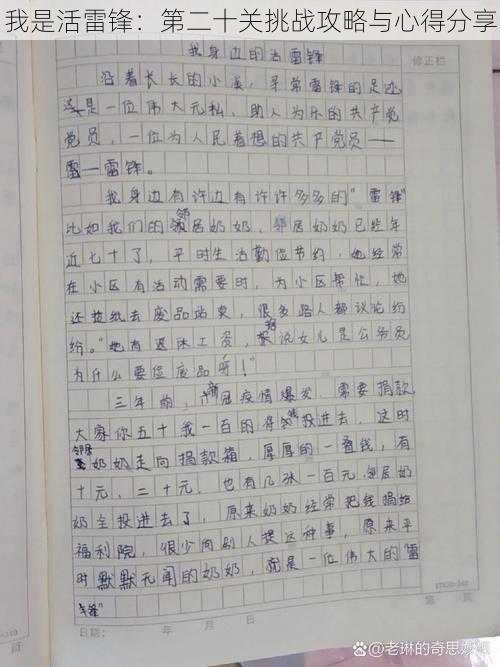 我是活雷锋：第二十关挑战攻略与心得分享
我身边的活雷锋
修正栏
沿着长长的小溪，寻常雷锋的足迹
是一位伟大无私、助人为乐的共产党
党员，一位为人民着想的共产党员——
雷一雷锋。
我身边有许边有许许多多的“雷锋”
比如我们的邻居奶奶，邻居奶奶已经年
近七十了，平时生活勤俭节约，她经常
在小区有活动需要时，为小区帮忙，她
还捡纸去废品站卖，很多路人都议论纷
纷。“她有退休工资，听说女儿是公务员
为什么要捡废品呀！”
三年前，新冠疫情爆发，需要捐款
大家你五十我一百的将钱投进去，这时
邻居奶奶走向捐款箱，厚厚的一叠钱，有
十元，二十元，也有几张一百元，邻居奶
奶全投进去了，原来奶奶经常把钱捐给
福利院，很少向别人提这种事，原来平
时默默无闻的奶奶，就是一位伟大的“雷
锋”
日期： 年 月 日
第 页
@老琳的奇思妙想